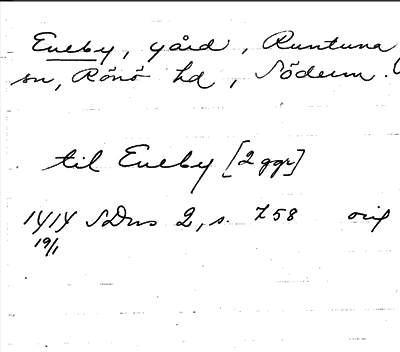 Eneby, gård, Runtuna
sn, Rönö hd, Söderm. (
til Eneby [2 ggr]
1414 SDns 2, s. 758 orig
19/1